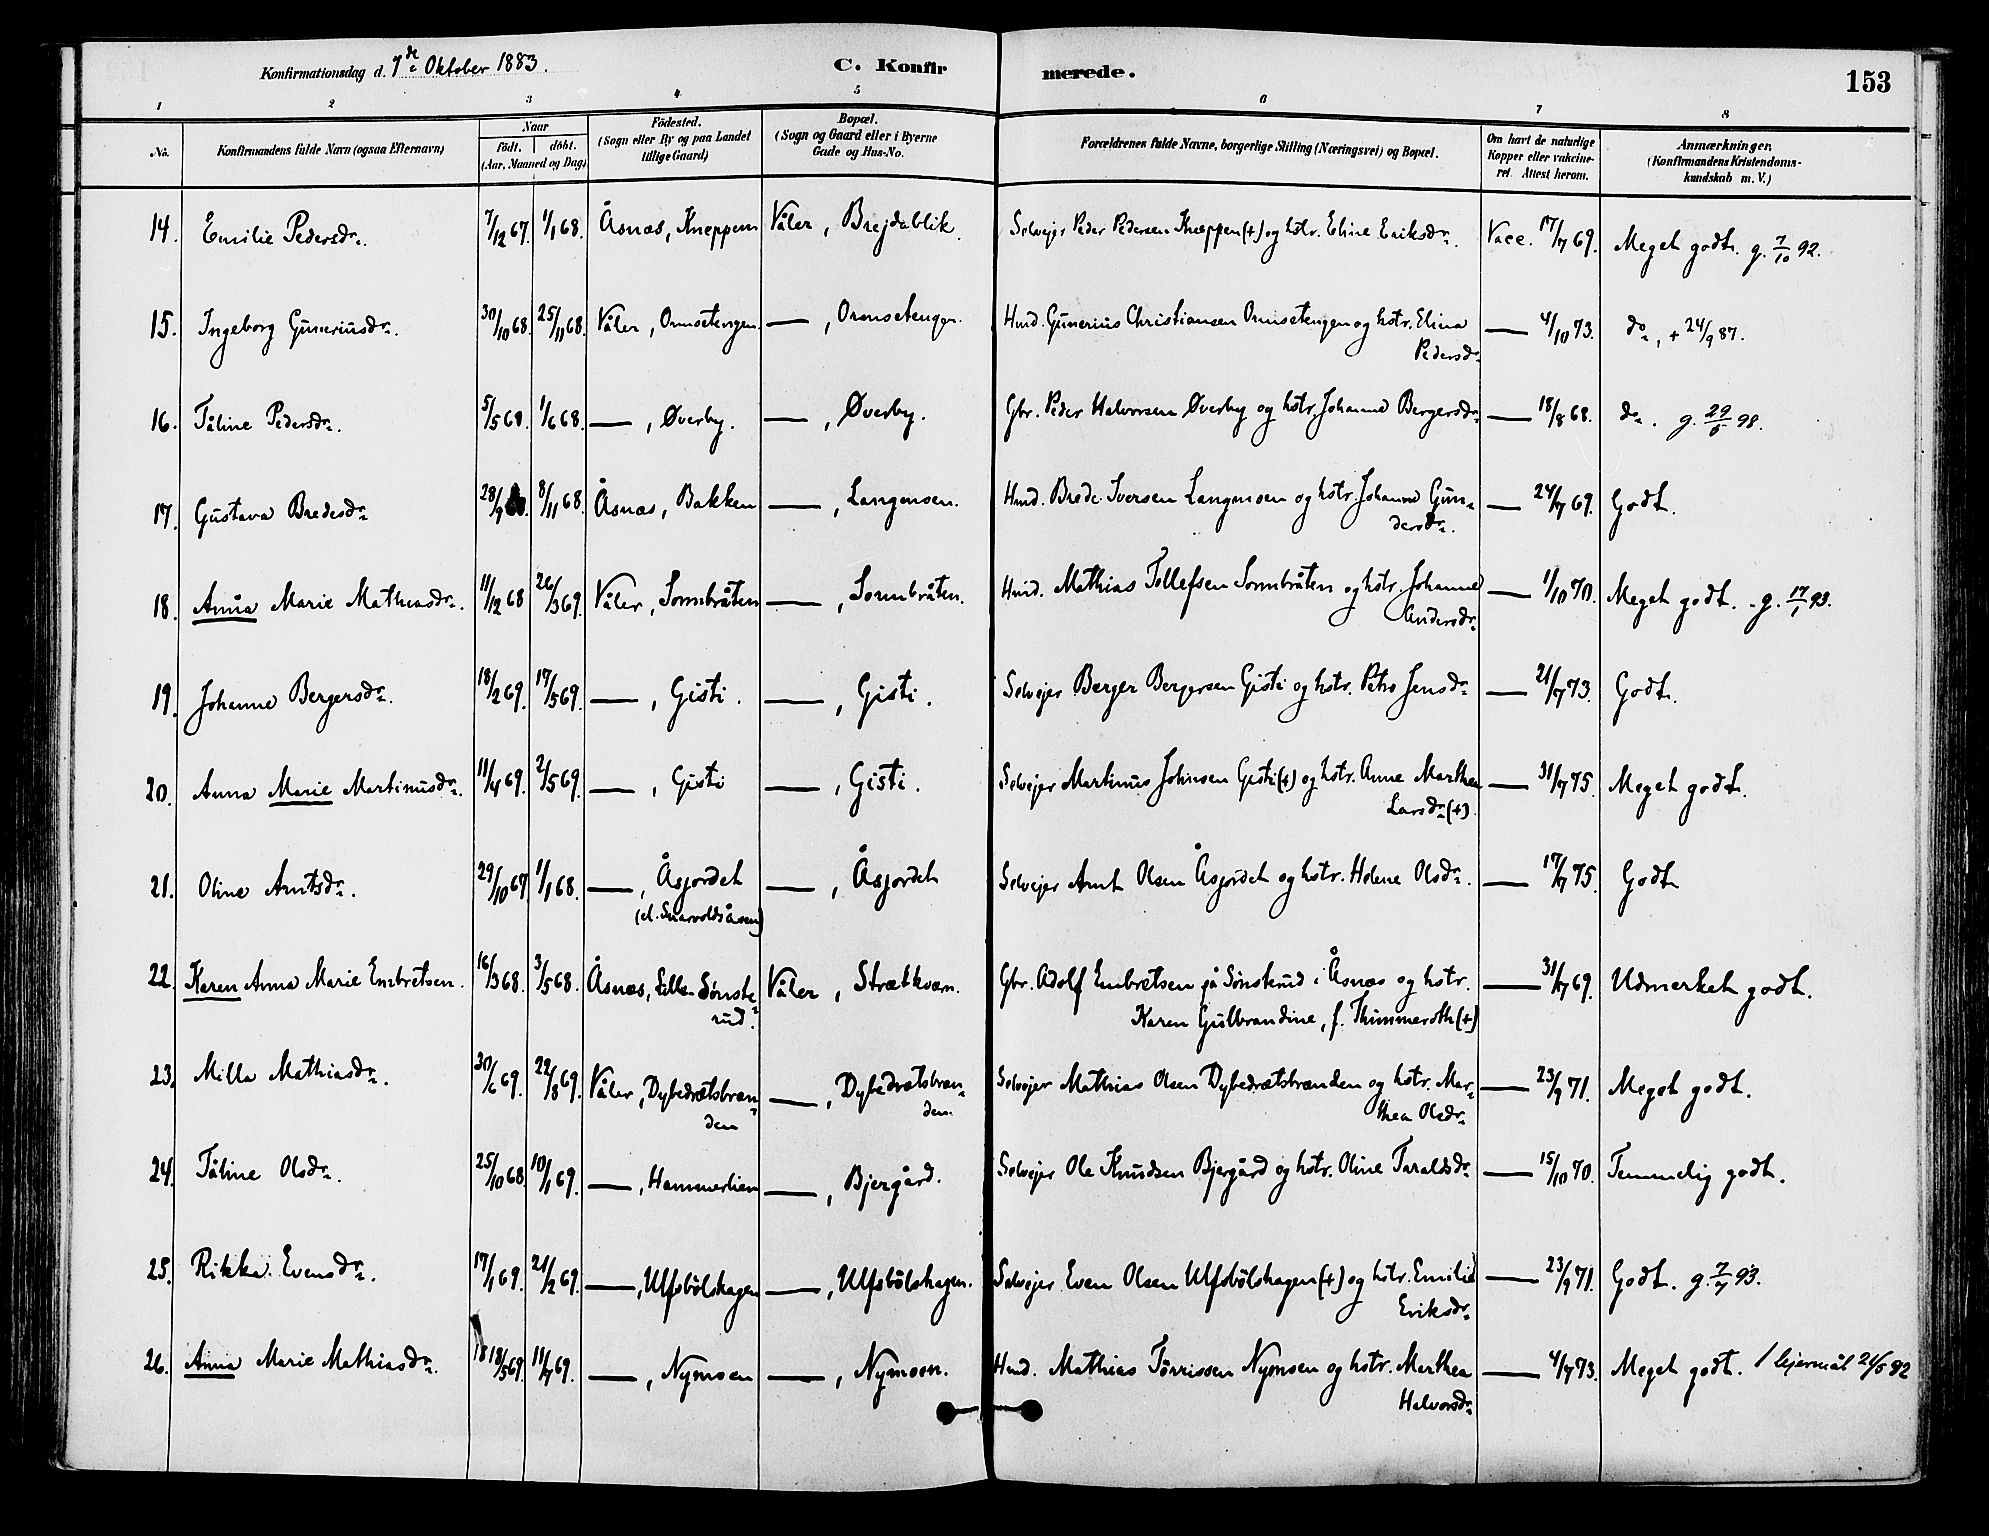 Konfirmationsdag d. 7de Oktober 1883.
C. Konfir
merede.
153
1 2 3 4 5 6 7 8
No.
Konfirmandens fulde Navn (ogsaa Efternavn)
Naar
födt. döbt.
(Aar, Maaned og Dag)
Födested.
(Sogn eller By og paa Landet
tillige Gaard)
Bopæl.
(Sogn og Gaard eller i Byerne
Gade og Hus-No.
Forældrenes fulde Navne, borgerlige Stilling (Næringsvei) og Bopæl.
Om havt de naturlige
Kopper eller vakcine-
ret. Attest herom.
Anmærkninger.
(Konfirmandens Kristendoms-
kundskab m. V.)
14. Emilie Pedersdr. 7/12 67. 1/1 68. Åsnæs, Kneppen Våler, Brejdablik. Selvejer Peder Pedersen Kneppen (+) og hstr. Eline Eriksdr. Vacc. 17/7 69. Meget godt. g. 7/10 92.
15. Ingeborg Guneriusdr. 30/10 68. 25/11 68. Våler, Ormsetengen. — , Ormsetengen. Hmd. Gunerius Christiansen Ormsetengen og hstr. Elina — 4/10 73. do, + 24/9 87.
Pedersdr
16. Tåline Pedersdr. 5/5 68. 1/6 68. — , Øverby. — , Øverby. Gbr. Peder Halvorsen Øverby og hstr. Johanne Bergersdr — 18/8 68. do. g. 29/5 98.
17. Gustava Bredesdr 28/9 8/11 68. Åsnæs, Bakken — , Langmoen. Hmd. Brede Iversen Langmoen og hstr. Johanne Gun- — 24/7 69. Godt.
dersdr.
18. Anna Marie Mathiasdr. 11/12 68 26/3 69. Våler, Sormbråten — , Sormbråten. Hmd. Mathias Tollefsen Sormbråten og hstr. Johanne — 1/10 70. Meget godt. - g. 17/1 93.
Andersdr
19. Johanne Bergersdr. 18/2 69. 17/5 69. — , Gisti. — , Gisti. Selvejer Berger Bergersen Gisti og hstr. Petra Jensdr — 21/7 73. Godt.
20. Anna Marie Martinusdr. 11/4 69. 2/5 69. — , Gisti — , Gisti. Selvejer Martinus Johnsen Gisti (+) og hstr. Anne Marthea — 31/7 75. Meget godt.
Larsdr (+)
21. Oline Arntsdr. 29/10 67 1/1 68. — , Åsjordet — , Åsjordet Selvejer Arnt Olsen Åsjordet og hstr. Helene Olsdr. — 17/7 75. Godt
(el. Snarvoldsåsen)
22. Karen Anna Marie Embretsen. 16/3 68. 3/5 68. Åsnæs, Lille Sønste Våler, Strætkvern. Gbr. Adolf Embretsen på Sønsterud i Åsnæs og hstr. — 31/7 69. Udmerket godt.
rud. Karen Gulbrandine, f. Thimmeroth (+)
23. Milla Mathiasdr. 30/6 69. 22/8 69. Våler, Dybedrætsbræn- — , Dybedrætsbræn- Selvejer Mathias Olsen Dybedrætsbrænden og hstr. Mar- — 23/9 71. Meget godt.
den den. thea Olsdr
24. Tåline Olsdr. 25/10 68. 10/1 69. — , Hammerlien — , Bjergård. Selvejer Ole Knudsen Bjergård og hstr. Oline Taraldsdr — 15/10 70. Temmelig godt.
25. Rikka Evensdr. 17/1 69. 21/2 69. — , Ulfsbölshagen — , Ulfsbölshagen. Selvejer Even Olsen Ulfsbölshagen (+) og hstr. Emilie — 23/9 71. Godt. g. 7/7 93.
Eriksdr
26. Anna Marie Mathiasdr. 18/5 69. 11/7 69. — , Nymoen — , Nymoen. Hmd. Mathias Tørrissen Nymoen og hstr. Marthea — 4/7 73. Meget godt. 1 lejermål 21/5 92
Halvorsdr